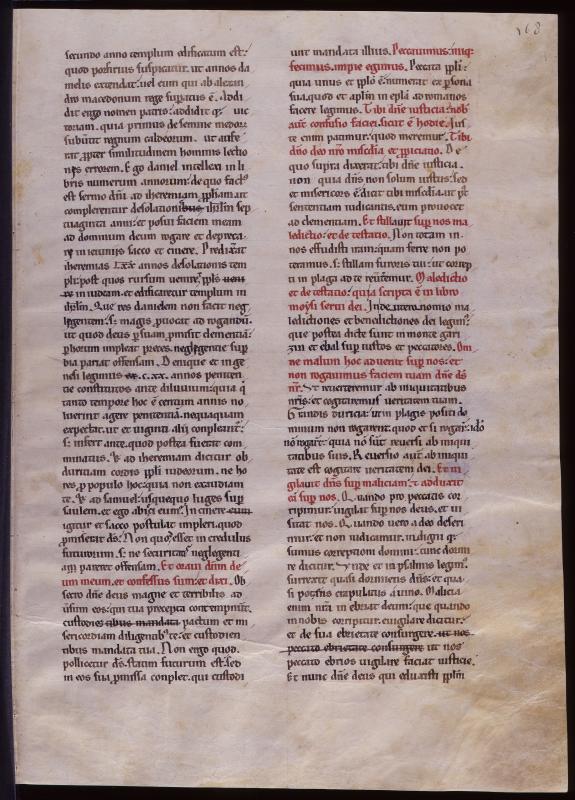 168
secundo anno templum edificatum est:
quod porfirius suspicatur. ut annos da
melis extendat: uel eum qui ab alexan
dro macedonum rege suꝑatus ē. Addi
dit ergo nomen patris: addidit & uic
toriam. qua primus de semine medoꝝ
subūtit regnum caldeorum. ut aufe
rat ꝓpter similitudinem hominis lectio
nis errorem. Ego daniel intellexi in li
bris numerum annorum: de quo factꝰ
est sermo dn̄i ad iheremiam ꝓph̄am. ut
complerentur desolationis ihrl̄m sep
tuaginta anni: et posui faciem meam
ad dominum deum rogare et depreca
ri in ieiuniis sacco et cinere. Predixerat
iheremias Lxx annos desolationis tem
pli: post quos rursum ueniret ppl̄s
in iudeam. et edificaretur templum in
ihrl̄m. Que res danielem non facit neg
legentem: sꝫ magis ꝓuocat ad rogandū.
ut quod deus ꝑ suam ꝓmisit clementiā:
ꝑ horum impleat preces. neglegentie sup
bia pariat offensam. Denique et in ge
nesi legimus c.xx. annos peniten
tie constitutos ante diluuium: quia q̄
tanto tempore hoc ē centum annis no
luerint agere penitentiā. nequaquam
expectat. ut et uiginti alii compleant:
sꝫ infert ante. quod postea fuerat com
minatus. Vnde ad iheremiam dicitur ob
duritiam cordis ppl̄i iudeorum. ne ho
res ꝓ populo hoc: quia non exaudiam
te. Et ad samuel: usquequo luges suꝑ
saulem. et ego abieci eum. In cinere
igitur et sacco postulat impleri. quod
ꝓmiserat dn̄s. Non quo esset in credulus
futurorum. sꝫ ne securitas neglegenti
am pareret offensam. Et oraui dn̄m de
um meum. et confessus sum: et dixi. Ob
secro dn̄e deus magne et terribilis. ad
u̅sum eos: qui tua precepta contempnūt.
custodies tibus mandata pactum et mi
sericordiam diligentibꝰ te: et custodien
tibus mandata tua. Non ergo quod.
pollicetur ds̄. statim futurum est: sed
in eos sua ꝓmissa conplet. qui custodi
unt mandata illius. Peccauimus: iniq̄
fecimus. impie egimus. Peccata ppl̄i.
quia unus et ppl̄o ē. numerat ex ꝑsona
sua. quod et aplm̄ in epl̄a ad romanos
facere legimus. Tibi dn̄e iusticia: nob̄
aut̄ confusio faciei. sicut ē hodie. Jus
te enim patimur. quod meremur. Tibi
dn̄o deo nr̄o misc̄dia et ꝓpiciatio. De
quo supra dixerat. tibi dn̄e iusticia.
non quia dn̄s non solum iustus: sed
et misericors ē. dicit tibi misc̄dia. ut p̄
sententiam iudicantis. eum prouocet
ad clementiam. Et stillauit suꝑ nos ma
ledictio: et detestatio. Non totam in
nos effudisti iram: quam ferre non po
teramus. sꝫ stillam furoris tui: ut correp
ti in plaga ad te reūtemur. Maledictio
et detestatio: quia scripta ē in libro
moysi serui dei. In deuteronomio ma
ledictiones et benedictiones dei legimꝰ.
que postea dicte sunt in monte gari
zin et ebal. suꝑ iustos et peccatores. Om
ne malum hoc aduenit suꝑ nos: et
non rogauimus faciem tuam dn̄e ds̄
nr̄. Vt reuerteremur ab iniquitatibus
nr̄is: et cogitaremus ueritatem tuam.
Grandis duricia: ut in plagis positi do
minum non rogarent. quod et si rogar:
nō rogar̄t. quia nō sūt reuersi ab iniqui
tatibus suis. Reuersio aut̄ ab iniqui
tate. est cogitare ueritatem dei. Et ui
gilauit dn̄s suꝑ maliciam: et adduxit
eā suꝑ nos. Quando pro peccatis cor
ripimur: uigilat suꝑ nos deus. et ui
sitat nos. Quando uero a deo deseri
mur. et non iudicamur. indigni q̄
sumus correptioni domini: tunc dormi
re dicitur. Vnde et in psalmis legimꝰ.
surrexit quasi dormiens dn̄s: et qua
si potens crapulatus a uino. Malicia
enim nr̄a in ebriat deum: que quando
in nobis corripitur. euigilare dicitur:
et de sua ebrietate consurgere. ut nos
peccato ebrietate consurgere ut nos
peccato ebrios uigilare faciat iusticie.
Et nunc dn̄e deus qui eduxisti ppl̄m